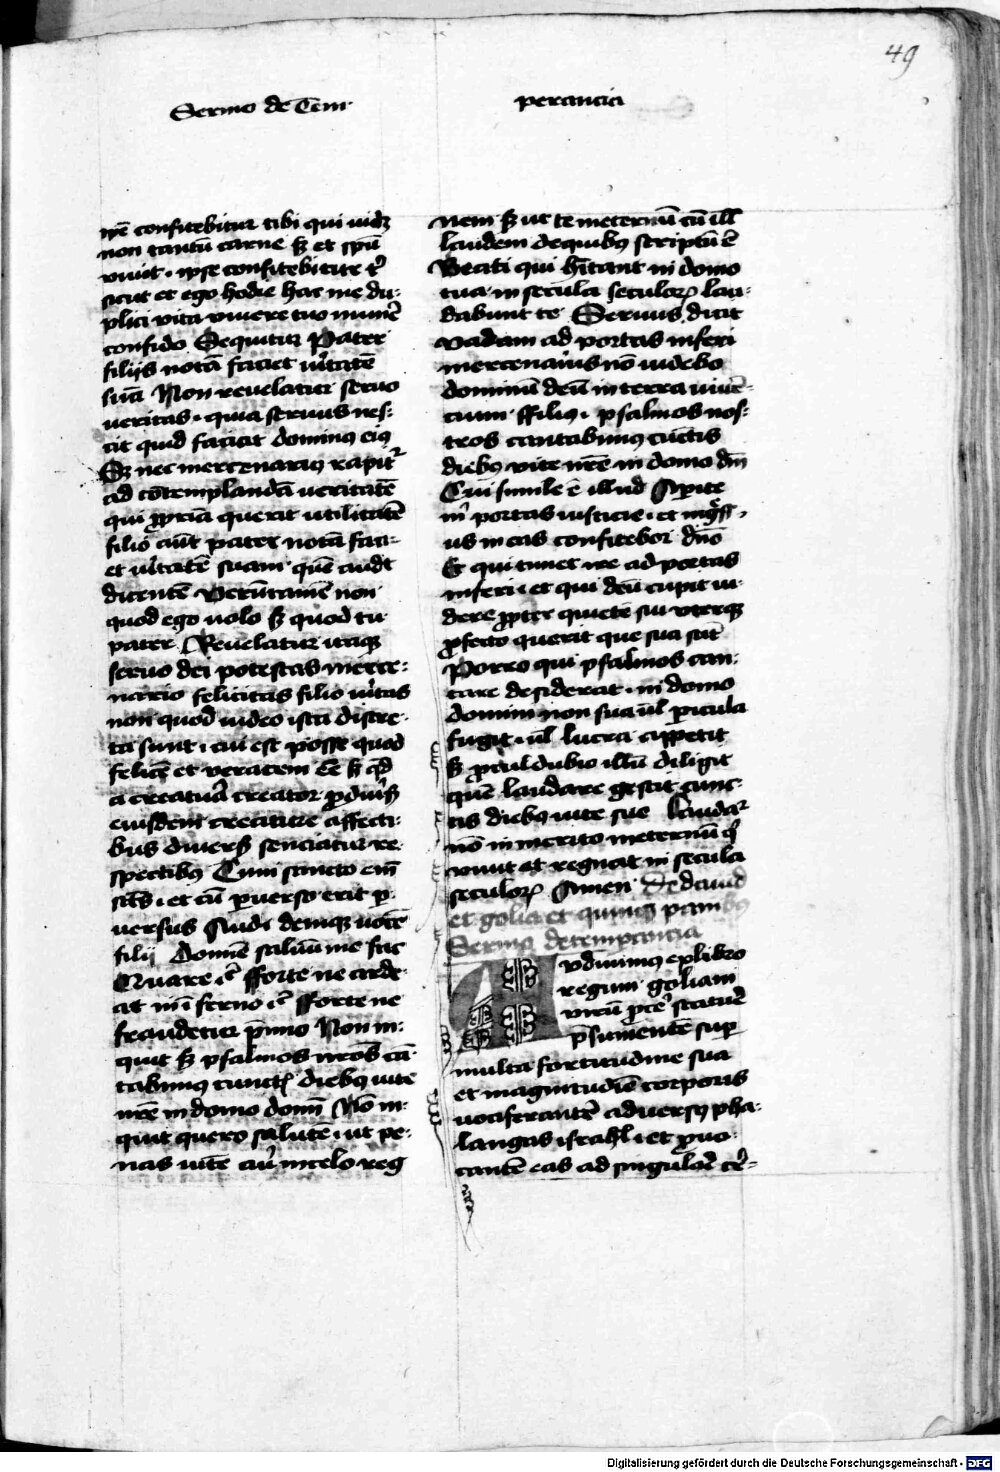 49
Sermo de Tem
perancia
ipē confitebitur tibi qui uidꝫ
non tantū carne sꝫ et spū
viuit · ipse confitebitur tͥ
sicut et ego hodie hac me du-
plici vita viuere tuo munē
confido Sequitur Pater
filijs notā faciet ūitatē
suā Non reuelatur seruo
veritas · quia seruus nes-
cit quid faciat dominꝰ eiꝰ
Sꝫ nec mercenariꝰ rapitᷣ
ad cōtemplandā ueritatē
qui ꝓpriā querit utilitatē
filio aūt pater notā faci-
et ūitatē suam quē audit
dicentē Verūtamē non
quod ego uolo sꝫ quod tu
pater Reuelatur itaqꝫ
seruo dei potestas merce-
nario felicitas filio ūitas
non quod in deo ista discre-
ta sunt · cui est posse quod
felicē et veracem eē sꝫ qd̄
a creatura creator ꝓ diuͥs
eiusdem creature affecti-
bus diuerẜ senciatur re-
spectibꝰ Cum sancto em̄
scūs · et cū ꝑuerso erit ꝑ-
uersus Audi deniqꝫ uocē
filij Domīe saluū me fac
Quare iͨ fforte ne arde-
at in īferno iͨ fforte ne
fraudetur p̄mio Non in-
quit sꝫ psalmos nr̄os cā-
tabimꝰ cunctꝭ diebꝰ uite
nr̄e in domo domī Nō in-
quit quero salutē · ut pe-
nas uitē aūt in celo reg
nem sꝫ ut te in eternū cū ill̄
laudem de quibꝰ scriptū ē
Beati qui hītant in domo
tua in secula seculoꝝ lau-
dabunt te Seruus dicit
vadam ad portas inferi
mercenarius nō uidebo
dominū deū in terra viuē-
tium ffiliꝰ · psalmos nos-
tros cantabimꝰ cūctis
diebꝰ vite nr̄e in domo dn̄i
Cui simile ē illud Apite
mͥ portas iusticie · et ingͣss-
us in eas confitebor dn̄o
Et qui timet ire ad portas
inferi · et qui deū cupit ui-
dere ꝓpter quietē sui vterqꝫ
ꝓfecto querit que sua sūt
Porro qui psalmos can-
tare desiderat · in domo
domini non sua ūl ꝑicula
fugit · ūl lucra appetit
sꝫ ꝓculdubio illū diligit
quē laudare gestit cunc-
tis diebꝰ uite sue Laudaᷣ
nō in merito in eternū qͥ
viuit et regnat in secula
seculoꝝ Amen De dauid
et golia et quinqꝫ panibꝰ
Sermo de temperancia
Avdiuimꝰ ex libro
regum goliam
virū ꝓcē staturē
p̄sumentē sup
multa fortitudine sua
et magnitudīe corporis
uociferantē aduersꝰ pha-
langas israhl · et ꝓuo-
cantē eas ad singularē cͤr-
Digitalisierung gefördert durch die Deutsche Forschungsgemeinschaft - DFG